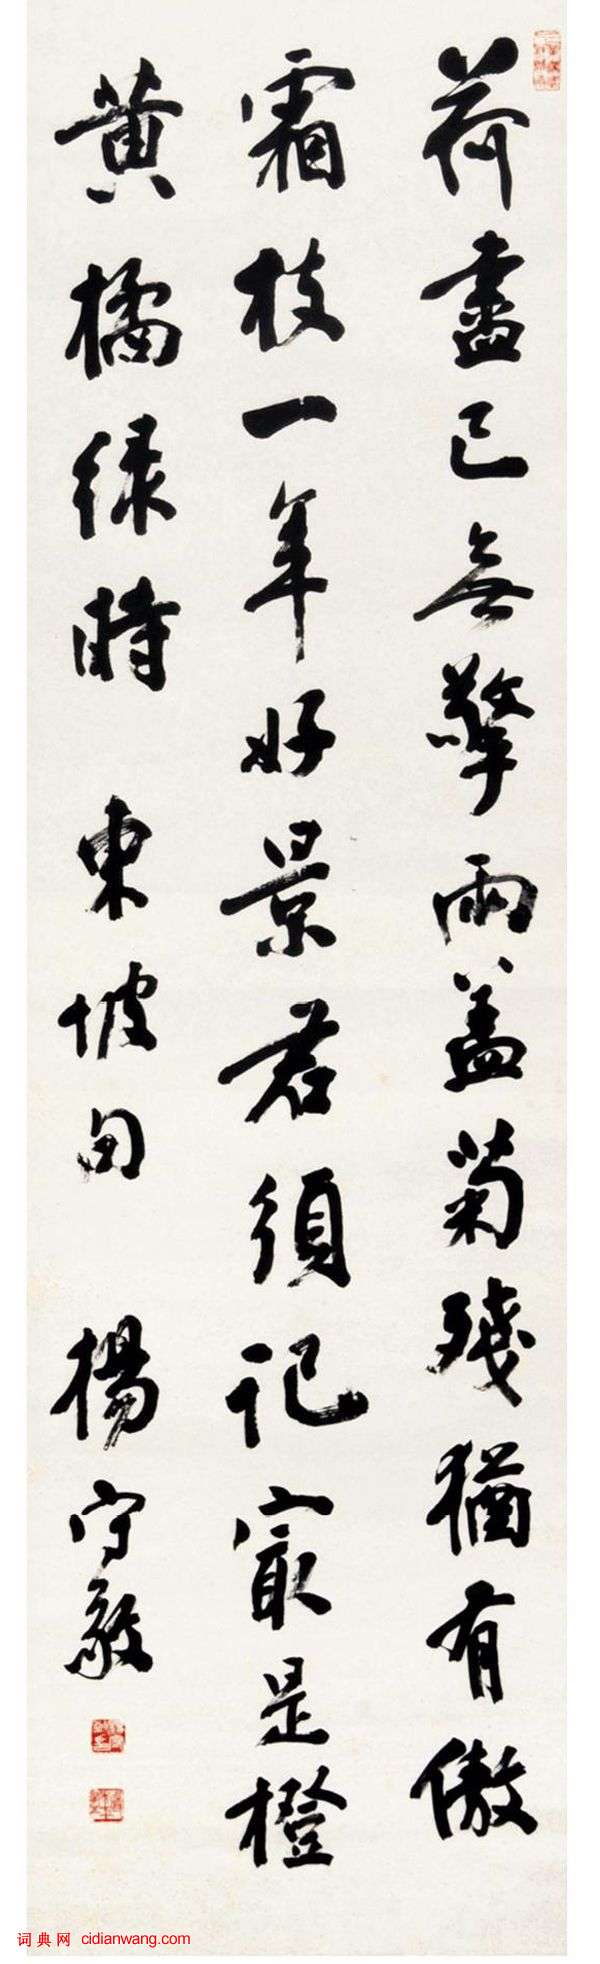 荷盡已無擎雨盖菊殘猶有傲
霜枝一年好景君須記冣是橙
黄橘緑時 東坡句 楊守敬
词典网 cidianwang.com